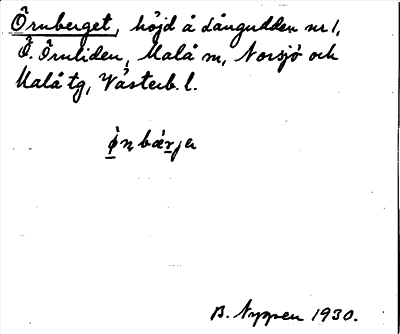 Örnberget, höjd å Långudden nr 1,
Ö. Örnliden, Malå sn, Norsjö och
Malå tg, Västerb. l.
B. Nyppen 1930.